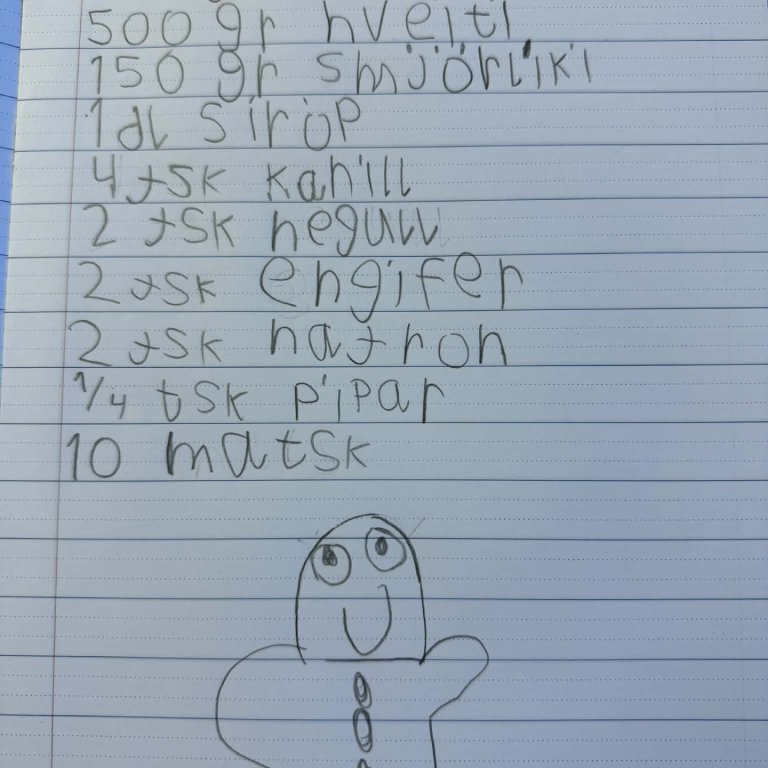 500 gr hveiti
150 gr smjörlíki
1 dl sirop
4 tsk kanill
2 tsk negull
2 tsk engifer
2 tsk natron
1/4 tsk pipar
10 matsk